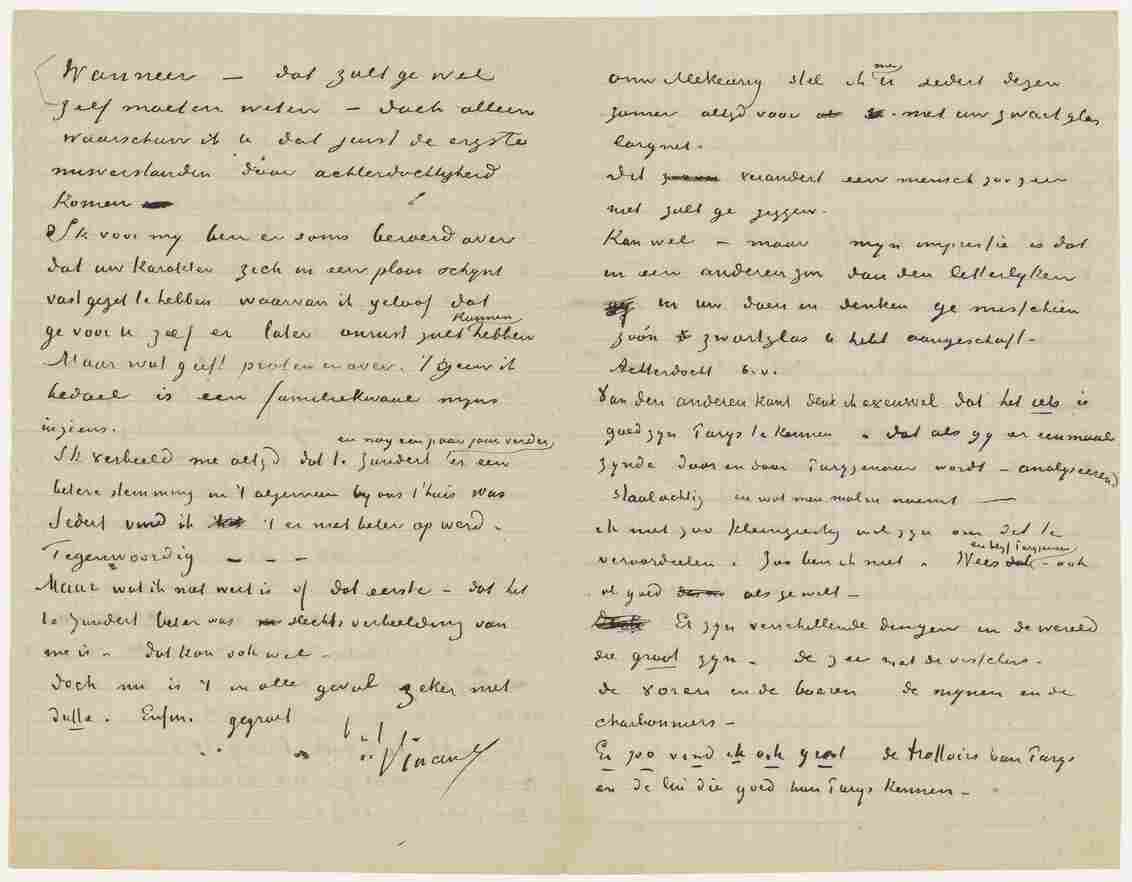 Wanneer – dat zult ge wel
zelf moeten weten – doch alleen
waarschuw ik u dat juist de ergste
misverstanden door achterdochtigheid
komen
Ik voor mij ben er soms beroerd over
dat uw karakter zich in een plooi schijnt
vastgezet te hebben waarvan ik geloof dat
kunnen
ge voor u zelf er later onrust zult hebben
Maar wat geeft praten er over. 't geen ik
bedoel is een familiekwaal mijns
inziens.
en nog een paar jaar verder
Ik verbeeld me altijd dat te Zundert er een
betere stemming in 't algemeen bij ons t'huis was
Sedert vind ik 't er niet beter op werd.
Tegenwoordig – – –
Maar wat ik niet weet is of dat eerste – dat het
te Zundert beter was slechts verbeelding van
me is – dat kan ook wel –
doch nu is 't in alle geval zeker niet
dulle. Enfin. gegroet
Vincent
me
stel ik U sedert dezen
zomer altijd voor met uw zwart glas
lorgnet.
Dit verandert een mensch zoo zeer
niet zult ge zeggen.
Kan wel – maar mijn impressie is dat
in een anderen zin dan den letterlijken
ge in uw doen en denken ge misschien
zoo'n zwartglas U hebt aangeschaft –
Achterdocht b.v.
Van den anderen kant denk ik evenwel dat het iets is
goed zijn Parijs te kennen. dat als gij er eenmaal
zijnde door en door Parijzenaar wordt – analyseerend
staalachtig en wat men malin noemt —
ik niet zoo kleingeestig wil zijn om dat te
en blijf Parijzenaar
veroordeelen. Zoo ben ik niet. Wees – ook
al goed als ge wilt –
Er zijn verschillende dingen in de wereld
die groot zijn – de zee met de visschers –
de voren en de boeren de mijnen en de
charbonniers –
En zoo vind ik ook groot de trottoirs van Parijs
en de lui die goed hun Parijs kennen –